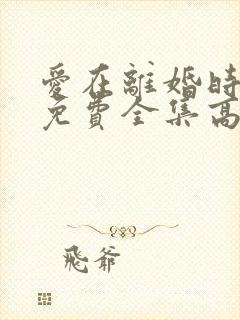 愛在離婚時
免費全集高
飛爺